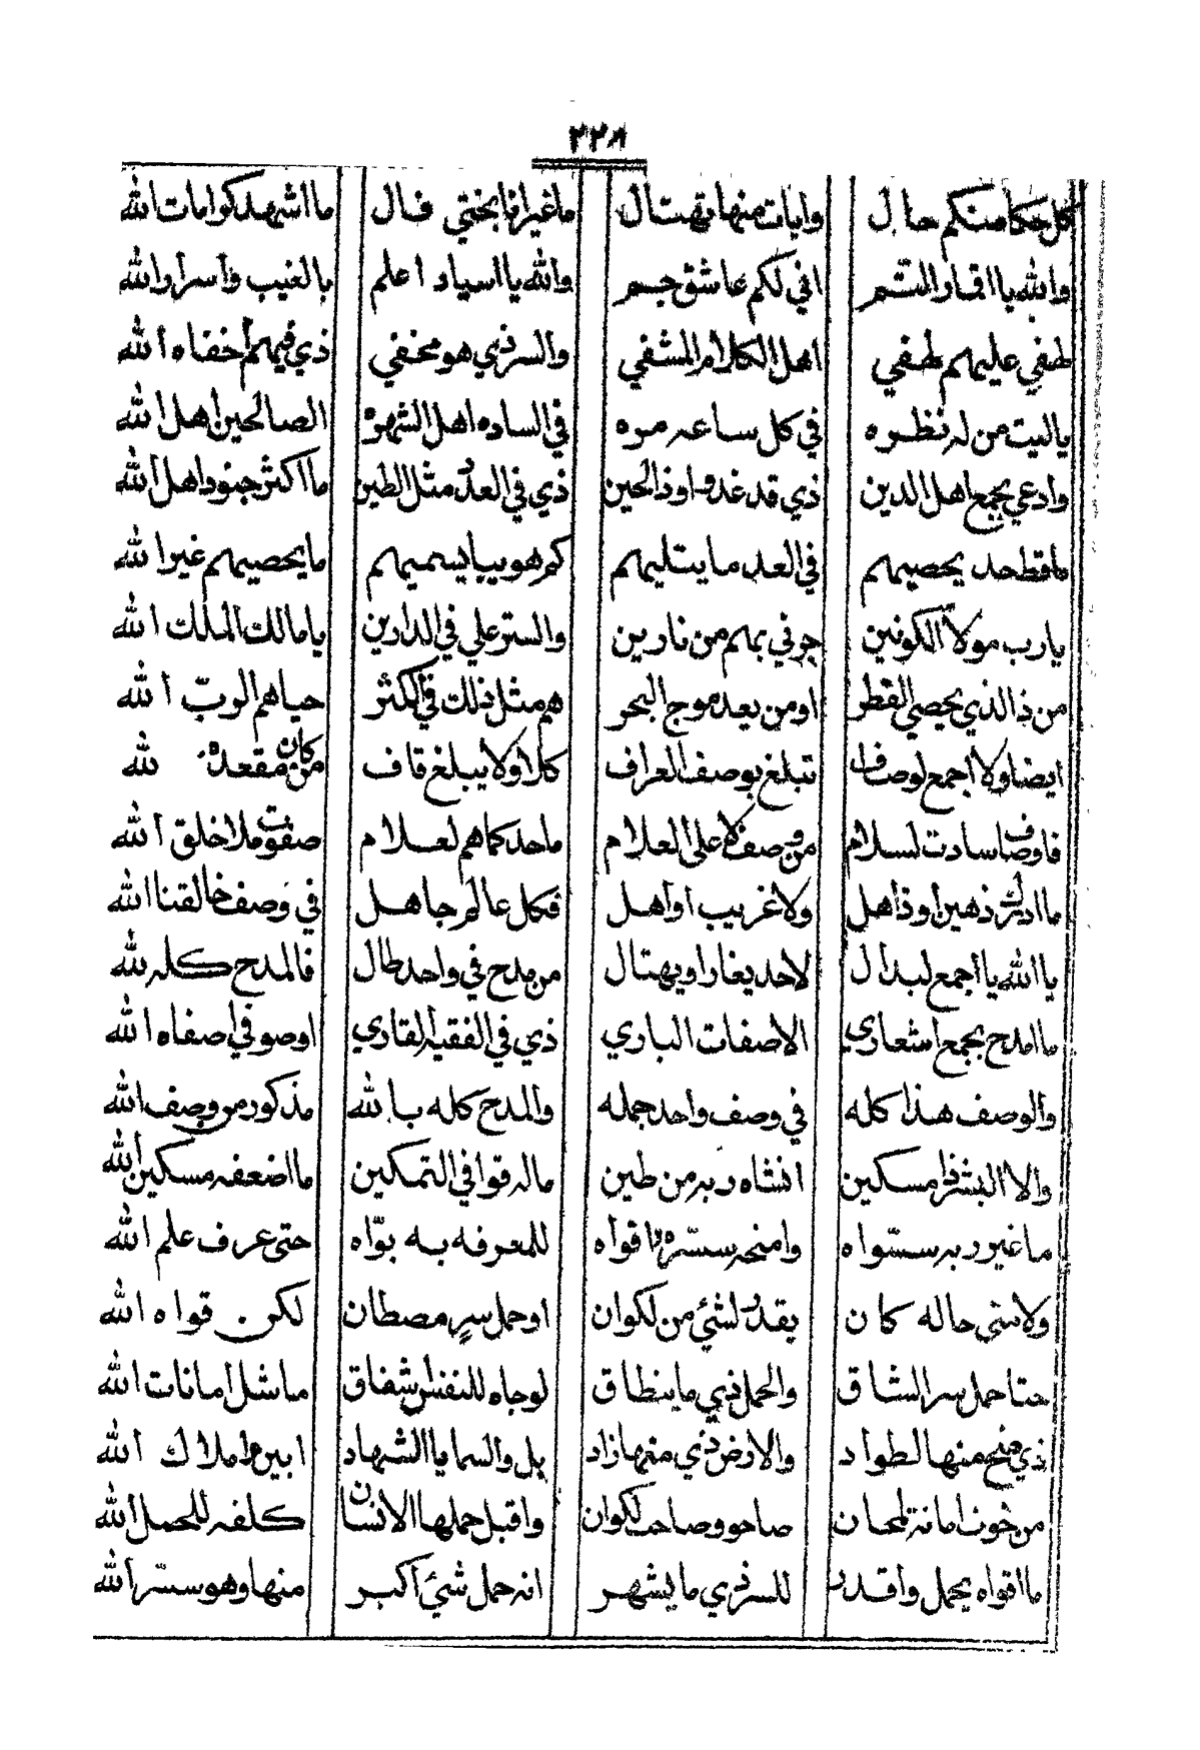 ٢٢٨
كل حكا منكم حال وايات منها تهتال ما غير انا بختي فال ما اشهد كرامات الله
والله يا اقمار التتم اني لكم عاشق جم والله يا اسياد اعلم بالغيب وأسرار الله
لهفي عليهم لهفي اهل الكلام المشفي والسر ذي هو مخفي ذي فيهم أخفاه الله
ياليت من له نظره في كل ساعه مره في الساده اهل الشهره الصالحين اهل الله
وادعي بجمع اهل الدين ذي قد غدو او ذا الحين ذي في العدد مثل الطين ما اكثر جنود اهل الله
ما قط حد يحصيهم في العد ما يتليهم كم هو يبا يسميهم ما يحصيهم غير الله
يا رب مولا الكونين جرني بهم من نارين والستر علي في الدارين يا مالك الملك الله
من ذا الذي يحصي القطر او من يعد موج البحر هم مثل ذلك في الكثر حياهم الرب الله
ايضا ولا أجمع لوصاف تبلغ بوصف العراف كلا ولا يبلغ قاف من كان مقعده لله
فاوصاف سادت لسلام من وصف لاعلى العلام ما حد كما هم لعلام صفوت ملا خلق الله
ما ادرك ذهين او ذاهل ولا غريب او اهل فكل عالم جاهل في وصف خالقنا الله
يا الله يا أجمع لبدال لاحد يغار او يهتال من مدح في واحد طال فالمدح كله لله
ما امدح بجمع اشعاري الا صفات الباري ذي في الفقيه القاري اوصو في اصفاه الله
والوصف هذا كله في وصف واحد جمله والمدح كله بالله مذكور من وصف الله
والا البشر فا مسكين انشاه ربه من طين ماله قوا في التمكين ما اضعفه مسكين الله
ما غير ربه سوّاه وامنحه سره باقواه للمعرفه به بوّاه حتى عرف علم الله
ولا شي حاله كان يقدر لشئ من لكوان او حمل سرٍ مصطان لكن قواه الله
حتا حمل سر الشاق والحمل ذي ما ينطاق لوجاه للنفس أشفاق ما شل امانات الله
ذي منح منها لطواد والارض ذي منها زاد بل والسمايا الشهاد ابين واملاك الله
من خون امانة لمحان صاحو وصاحت لكوان واقبل حملها الانسان كلفه للحمل الله
ما اقواه يحمل واقدر للسر ذي ما يشهر انه حمل شئ أكبر منها وهو سر الله